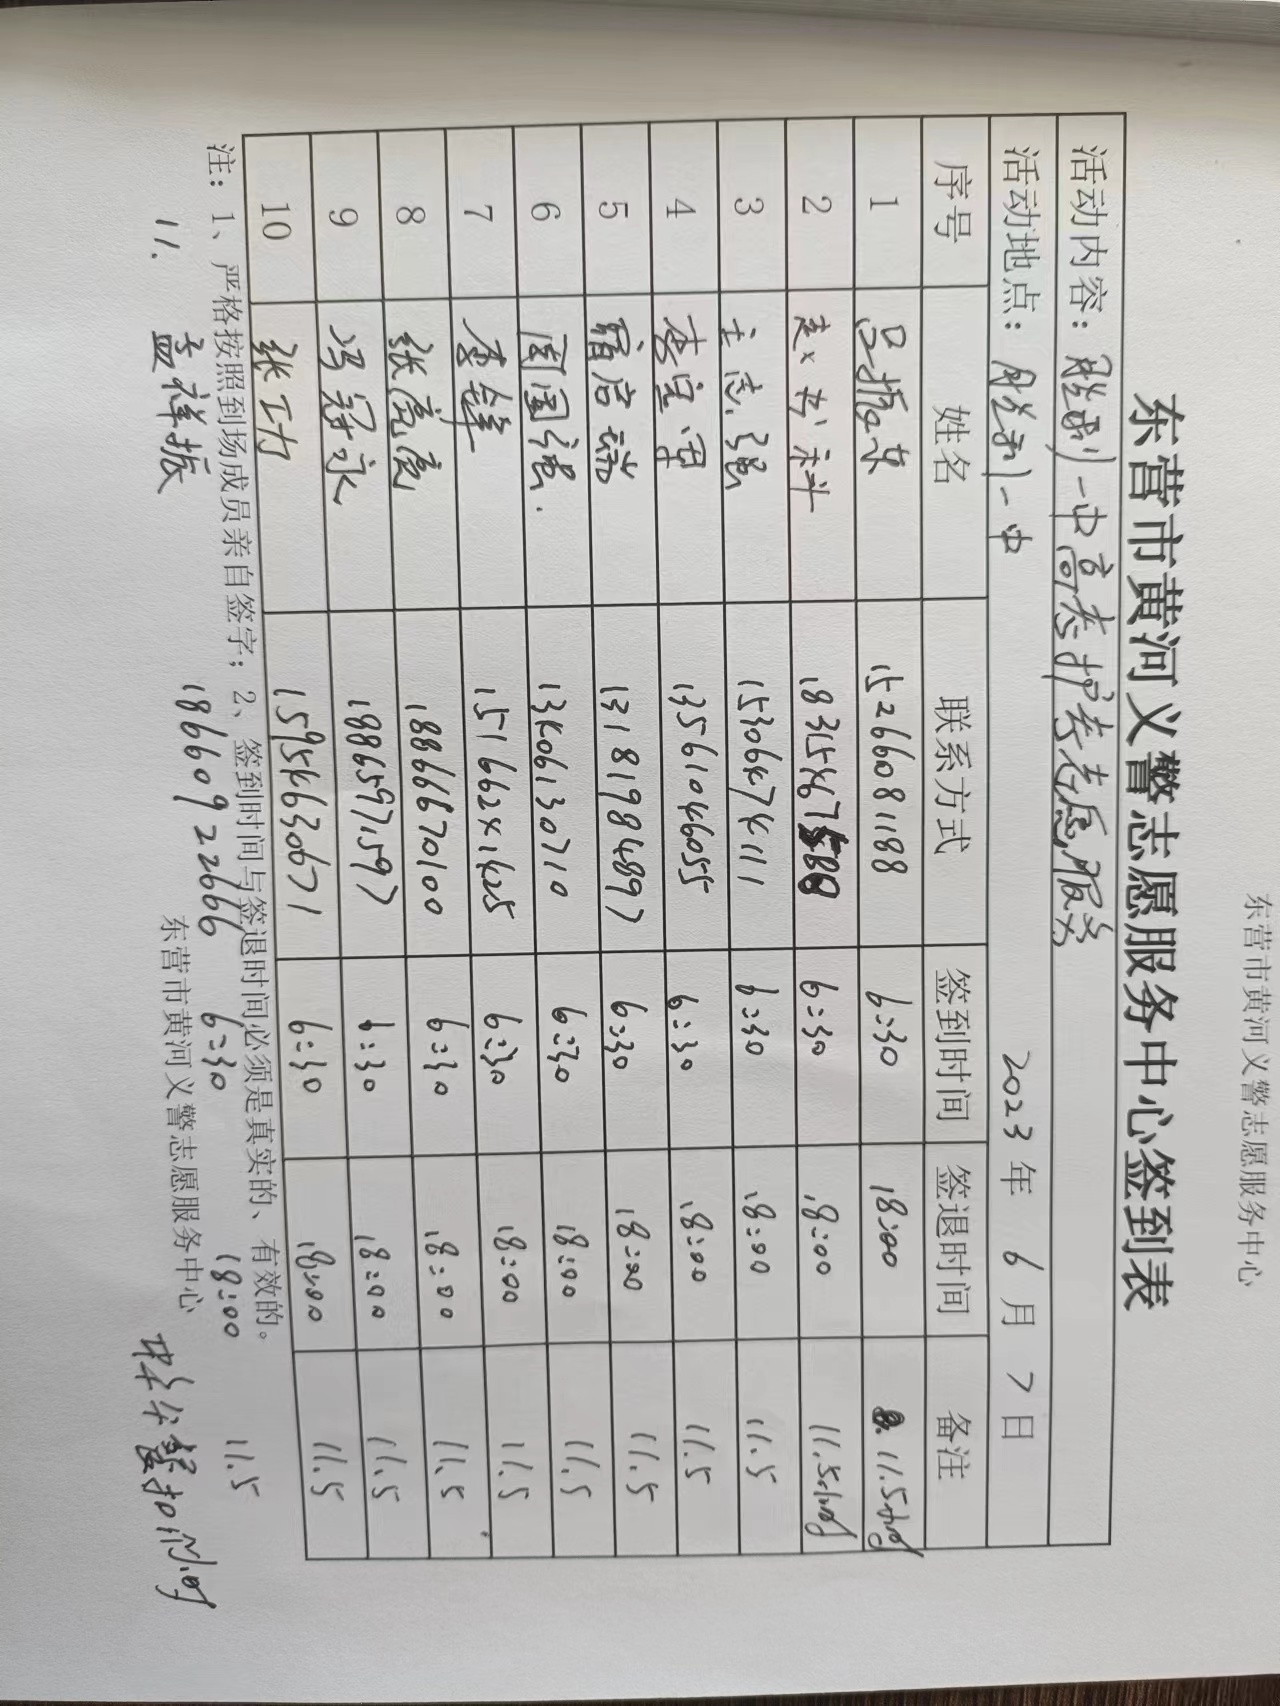 东营市黄河义警志愿服务中心
东营市黄河义警志愿服务中心签到表
活动内容：胜利一中高考护考志愿服务
活动地点：胜利一中 2023年 6月 7日
序号 姓名 联系方式 签到时间 签退时间 备注
1 吕振东 15266081188 6:30 18:00 11.5小时
2 18315467 6:30 18:00 11.5小时
3 王志强 15306474111 6:30 18:00 11.5
4 李宝军 13561046055 6:30 18:00 11.5
5 13181984897 6:30 18:00 11.5
6 周国强 13406130710 6:30 18:00 11.5
7 李锋 15166241425 6:30 18:00 11.5
8 张亮亮 18866670100 6:30 18:00 11.5
9 冯冠永 18865971597 6:30 18:00 11.5
10 张工力 15954630671 6:30 18:00 11.5
注：1、严格按照到场成员亲自签字；2、签到时间与签退时间必须是真实的、有效的。
11. 孟祥振 18660922666 6:30 18:00 11.5
东营市黄河义警志愿服务中心